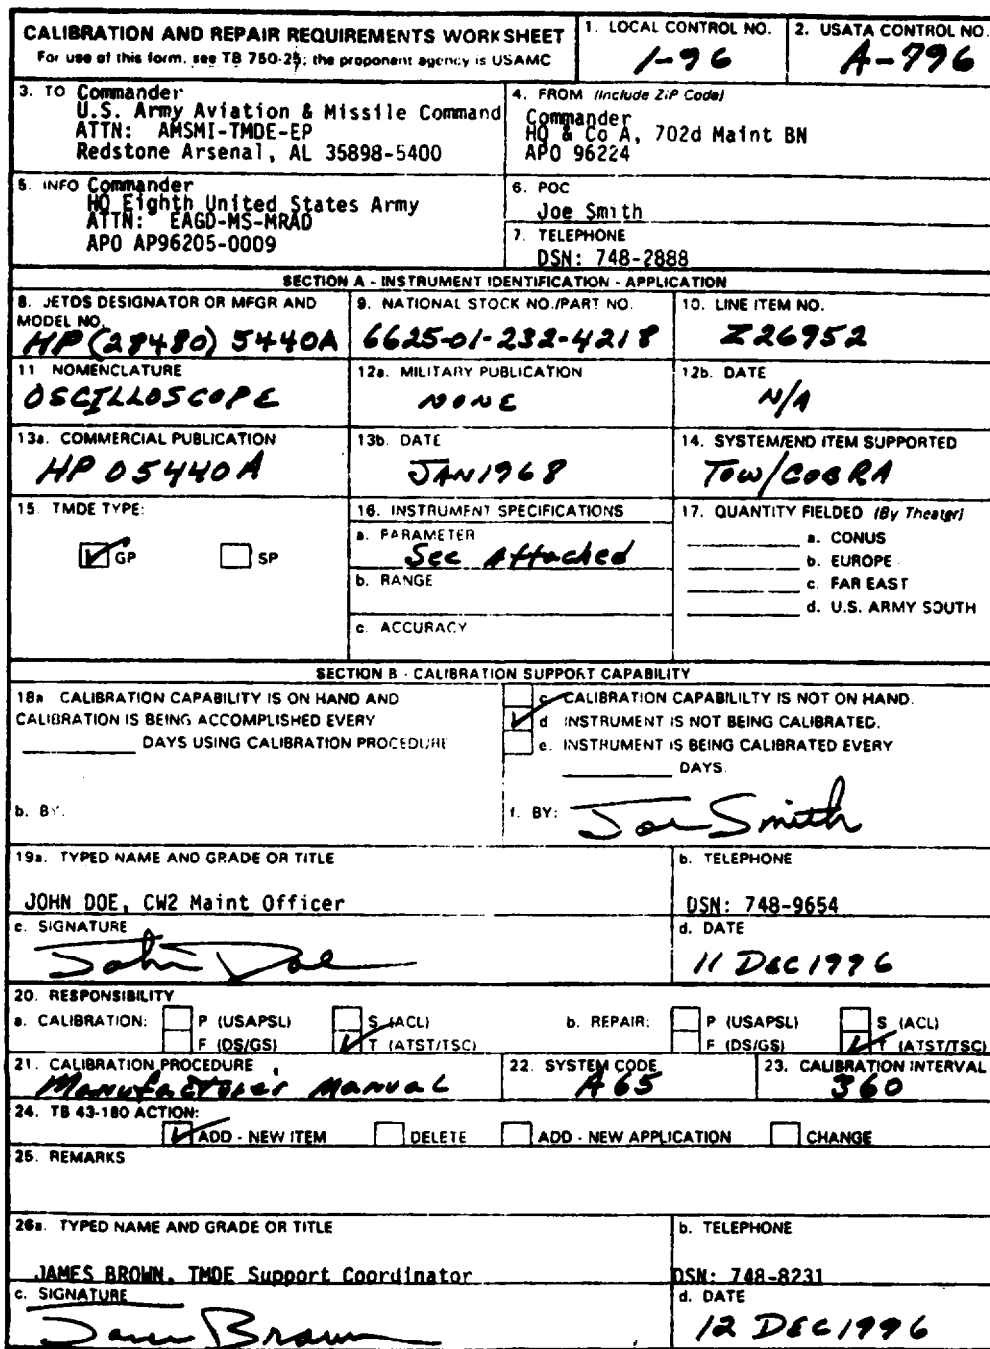 CALIBRATION AND REPAIR REQUIREMENTS WORKSHEET
For use of this form, see TB 750-25; the proponent agency is USAMC
1. LOCAL CONTROL NO.
1-96
2. USATA CONTROL NO.
A-796
3. TO Commander
U.S. Army Aviation & Missile Command
ATTN: AMSMI-TMDE-EP
Redstone Arsenal, AL 35898-5400
4. FROM (Include ZIP Code)
Commander
HQ & Co A, 702d Maint BN
APO 96224
5. INFO Commander
HQ Eighth United States Army
ATTN: EAGD-MS-MRAD
APO AP96205-0009
6. POC
Joe Smith
7. TELEPHONE
DSN: 748-2888
SECTION A - INSTRUMENT IDENTIFICATION - APPLICATION
8. JETDS DESIGNATOR OR MFGR AND
MODEL NO.
HP (28480) 5440A
9. NATIONAL STOCK NO./PART NO.
6625-01-232-4218
10. LINE ITEM NO.
Z26952
11 NOMENCLATURE
OSCILLOSCOPE
12a. MILITARY PUBLICATION
NONE
12b. DATE
N/A
13a. COMMERCIAL PUBLICATION
HP 05440A
13b. DATE
JAN 1968
14. SYSTEM/END ITEM SUPPORTED
TOW/COBRA
15. TMDE TYPE:
GP
SP
16. INSTRUMENT SPECIFICATIONS
a. PARAMETER
See Attached
b. RANGE
c. ACCURACY
17. QUANTITY FIELDED (By Theater)
a. CONUS
b. EUROPE
c. FAR EAST
d. U.S. ARMY SOUTH
SECTION B - CALIBRATION SUPPORT CAPABILITY
18a CALIBRATION CAPABILITY IS ON HAND AND
CALIBRATION IS BEING ACCOMPLISHED EVERY
DAYS USING CALIBRATION PROCEDURE
b. BY.
c. CALIBRATION CAPABILILTY IS NOT ON HAND.
d INSTRUMENT IS NOT BEING CALIBRATED.
e. INSTRUMENT IS BEING CALIBRATED EVERY
DAYS.
f. BY: Joe Smith
19a. TYPED NAME AND GRADE OR TITLE
JOHN DOE, CW2 Maint Officer
b. TELEPHONE
DSN: 748-9654
c. SIGNATURE
John Doe
d. DATE
11 DEC 1996
20. RESPONSIBILITY
a. CALIBRATION: P (USAPSL) S (ACL)
F (DS/GS) T (ATST/TSC)
b. REPAIR: P (USAPSL) S (ACL)
F (DS/GS) T (ATST/TSC)
21. CALIBRATION PROCEDURE
Manufacturer Manual
22. SYSTEM CODE
A65
23. CALIBRATION INTERVAL
360
24. TB 43-180 ACTION:
ADD - NEW ITEM DELETE ADD - NEW APPLICATION CHANGE
25. REMARKS
26a. TYPED NAME AND GRADE OR TITLE
JAMES BROWN, TMDE Support Coordinator
b. TELEPHONE
DSN: 748-8231
c. SIGNATURE
James Brown
d. DATE
12 DEC 1996